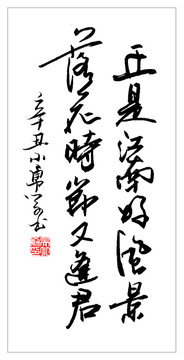 正是江南好風景
落花時節又逢君
辛丑小勇書